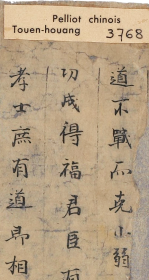 Pelliot chinois
Touen-houang 3768
道不戰而克小弱
功成得福君臣有
孝士庶有道即相